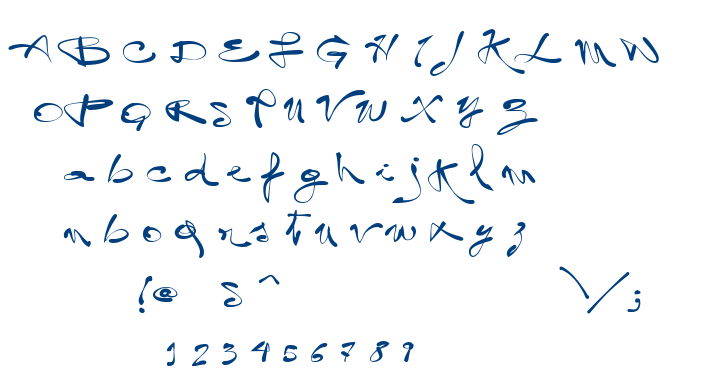 A B C D E F G H I J K L M N
O P Q R S T U V W X Y Z
a b c d e f g h i j k l m
n b o q r s t u v w x y z
! @ S ^ \ / ;
1 2 3 4 5 6 7 8 9